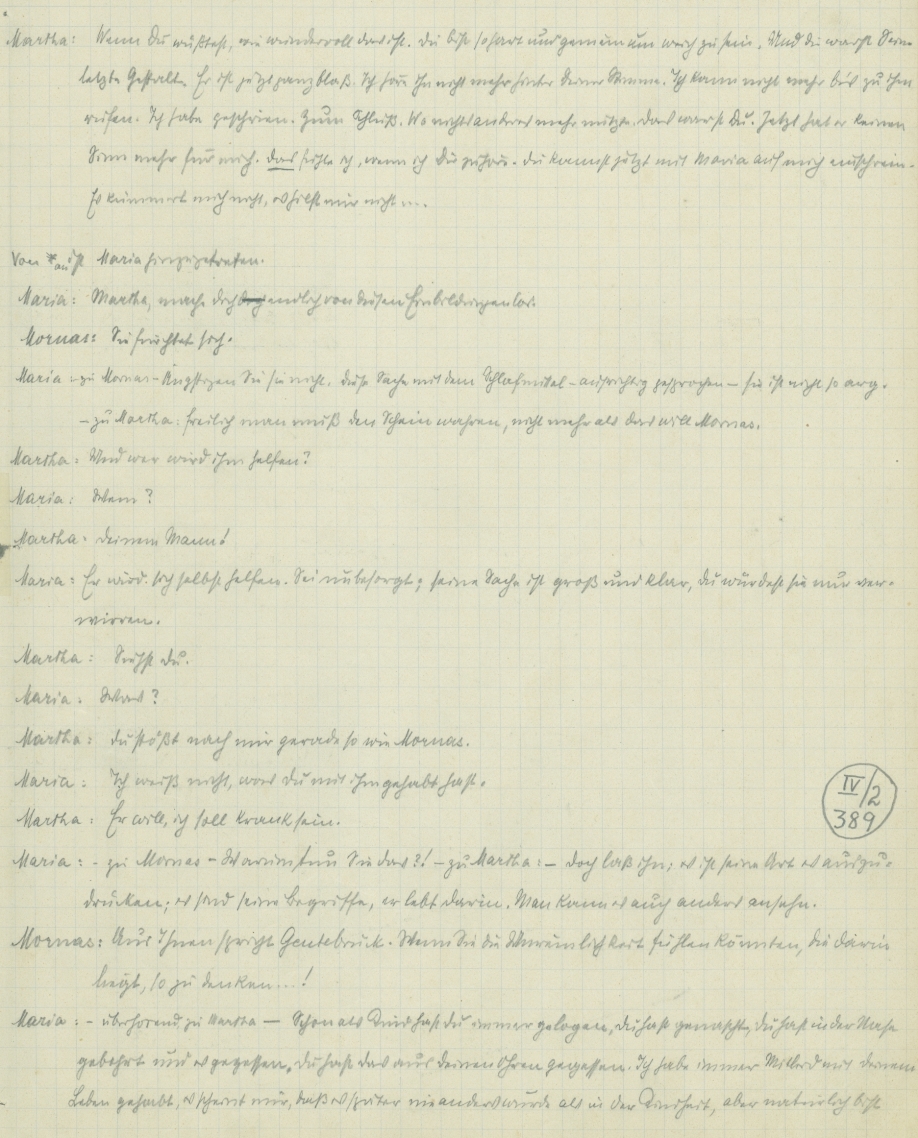 Martha: Wenn du wüßtest, wie wundervoll das ist. Du bist so hart und gemein um weich zu sein. Und du warst Seine
letzte Gestalt. Er ist jetzt ganz blaß. Ich seh Ihn nicht mehr hinter deiner Stimme. Ich kann nicht mehr bis zu Ihm
rufen. Ich habe geschrien. Zum Schluß. Wo nichts anderes mehr nützte. Das warst du. Jetzt hat er keinen
Sinn mehr für mich. Das fühle ich, wenn ich dir zuhöre. Du kannst jetzt mit Maria auf mich einschrein.
Es kümmert mich nicht, es hilft mir nicht ...
Von ist Maria hinzugetreten.
Maria: Martha, mache dich endlich von diesen Einbildungen los.
Mornas: Sie fürchtet sich.
Maria - zu Mornas - Ängstigen Sie sie nicht. Diese Sache mit dem Schlafmittel - aufrichtig gesprochen - sie ist nicht so arg.
- zu Martha: freilich man muß den Schein wahren, nicht mehr als das will Mornas.
Martha: Und wer wird ihm helfen?
Maria: Wem?
Martha: Deinem Mann!
Maria: Er wird sich selbst helfen. Sei unbesorgt; seine Sache ist groß und klar, du würdest sie nur ver-
wirren.
Martha: Siehst du.
Maria: Was?
Martha: Du stößt nach mir gerade so wie Mornas.
Maria: Ich weiß nicht, was du mit ihm gehabt hast.
Martha: Er will, ich soll krank sein.
IV/2
389
Maria: - zu Mornas - Warum tun Sie das?! - zu Martha: - Doch laß ihn; es ist seine Art es auszu-
drücken; es sind seine Begriffe, er lebt darin. Man kann es auch anders ansehn.
Mornas: Aus Ihnen spricht Gentebruck. Wenn Sie die Unreinlichkeit fühlen könnten, die darin
liegt, so zu denken...!
Maria: - überhörend, zu Martha - Schon als Kind hast du immer gelogen, du hast genascht, du hast in der Nase
gebohrt und es gegessen, du hast das aus deinen Ohren gegessen. Ich habe immer Mitleid mit deinem
Leben gehabt, es scheint mir, daß es später nie anders wurde als in der Kindheit, aber natürlich bist